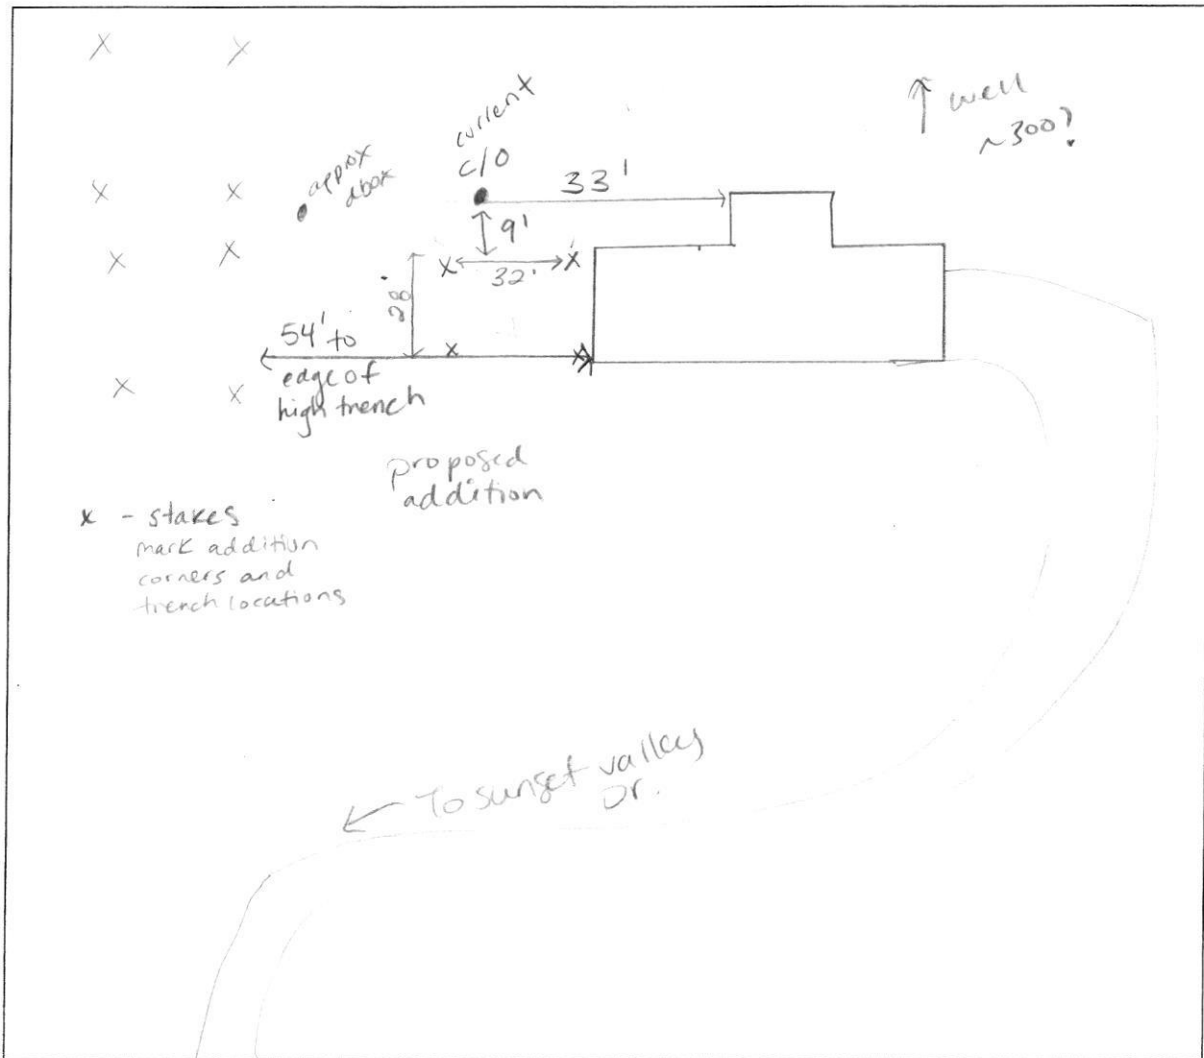 current
c/o
↑ well
~300?
approx
dbox
33'
9'
32'
28'
54' to
edge of
high trench
proposed
addition
x - stakes
mark addition
corners and
trench locations
← To sunset valley
Dr.